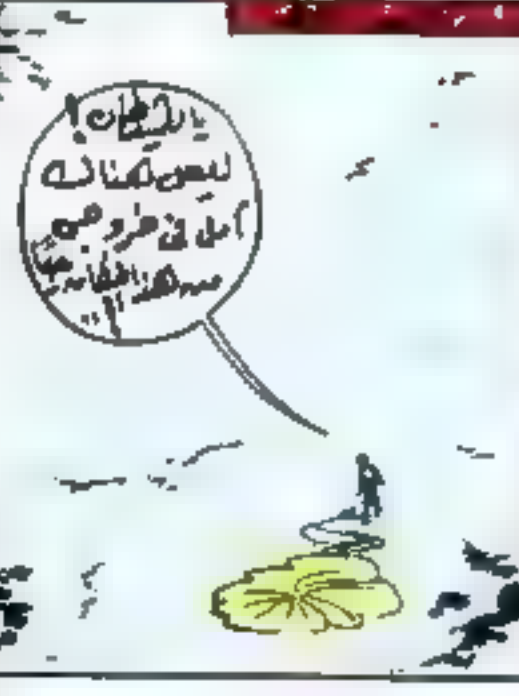 يا للشيطان!
ليس هناك
أمل في خروجي
من هذا